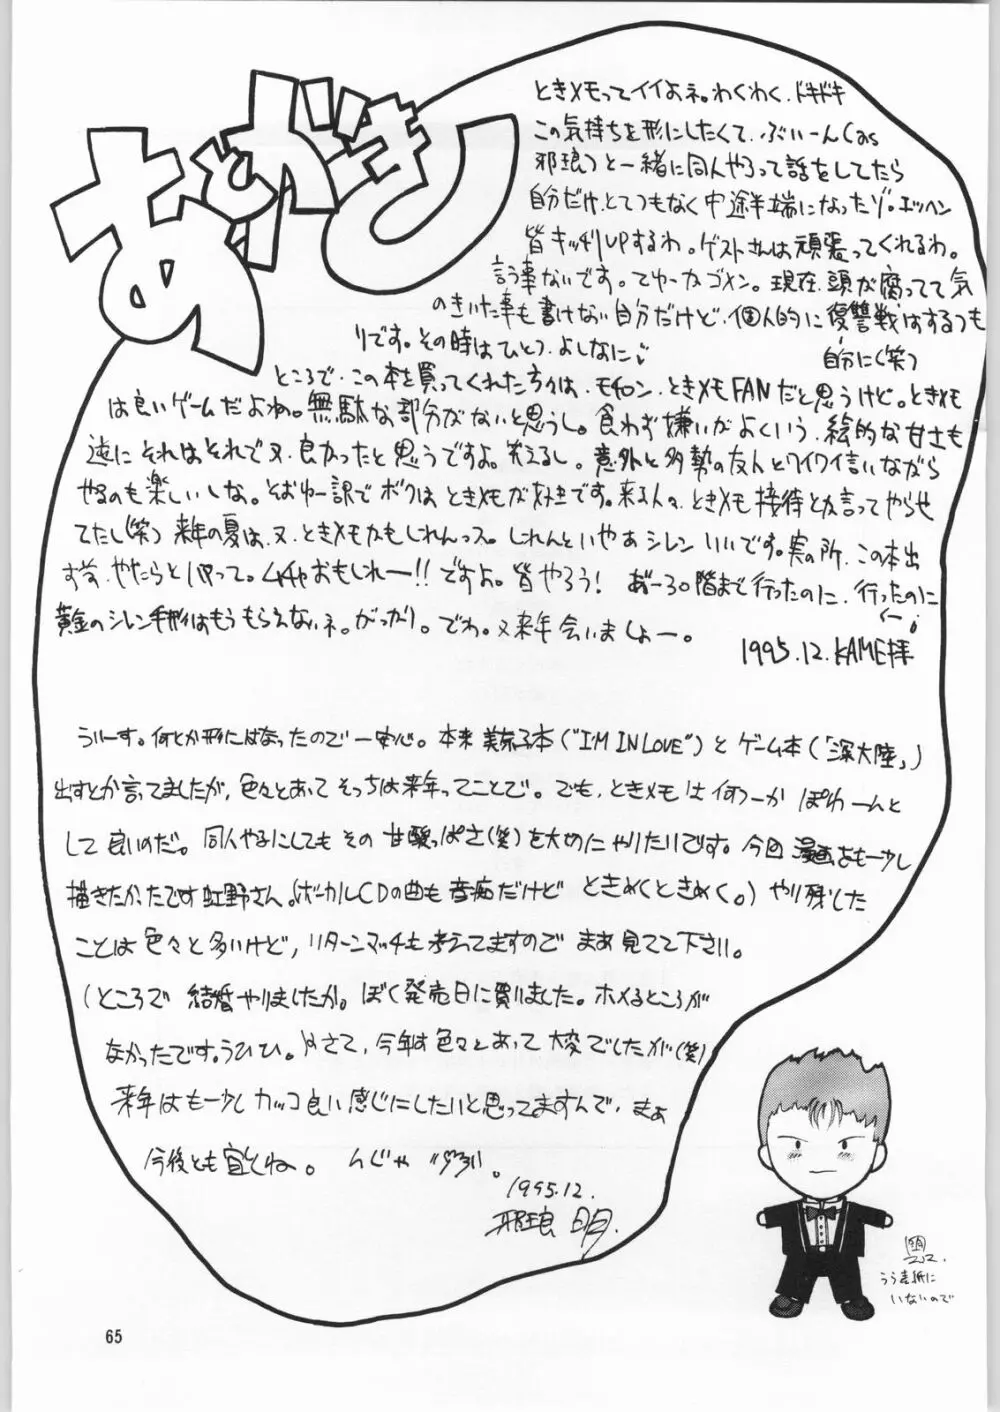 あとがき
ときメモってイイよネ。わくわく、ドキドキ
この気持ちを形にしたくて、ぶぃーん(as
邪琅)と一緒に同人やろって話をしてたら
自分だけ、とてつもなく中途半端になったゾ。エッヘン
皆キッチリUPするわ。ゲストさんは頑張ってくれるわ。
言う事ないです。てゆーかゴメン。現在、頭が腐ってて気
のきいた事も書けない自分だけど、個人的に復讐戦はするつも
りです。その時はひとつ、よしなに
自分に(笑)
ところで、この本を買ってくれた方々は、モチロン、ときメモFANだと思うけど。ときメモ
は良いゲームだよね。無駄な部分がないと思うし。食わず嫌いがよくいう、絵的な甘さも
逆にそれはそれで又、良かったと思うですよ。笑えるし。意外と多勢の友人とワイワイ言いながら
やるのも楽しいしな。そおゆー訳でボクはときメモが好きです。来る人々、ときメモ接待とか言ってやらせ
てたし(笑)来年の夏は、又、ときメモかもしれんっス。しれんといやあシレンいいです。実の所、この本出
す前、やたらとハマって。ムチャおもしれー!!ですよ。皆やろう! あ゛ーろ〇階まで行ったのに、行ったのに
黄金のシレン手形はもうもらえないネ。がっかり。でわ。又来年会いましょー。
1995.12.KAME拝
ういーす。何とか形にはなったので一安心。本来美奈子本("I'M IN LOVE")とゲーム本(「深大陸」)
出すとか言ってましたが、色々とあってそっちは来年ってことで。でも、ときメモは何つーかぽわーんと
して良いのだ。同人やるにしてもその甘酸っぱさ(笑)を大切にやりたいです。今回漫画をも一少し
描きたかったです虹野さん。(ボーカルCDの曲も音痴だけどときめくときめく。)やり残した
ことは色々と多いけど、リターンマッチも考えてますのでまあ見てて下さい。
(ところで結婚やりましたか。ぼく発売日に買いました。ホメるところが
なかったです。うひひ。)さて、今年は色々とあって大変でしたが(笑)
来年はも一少しカッコ良い感じにしたいと思ってますんで、まぁ
今後とも宜しくね。んじゃ
1995.12.
邪琅明
うら表紙に
いないので
65